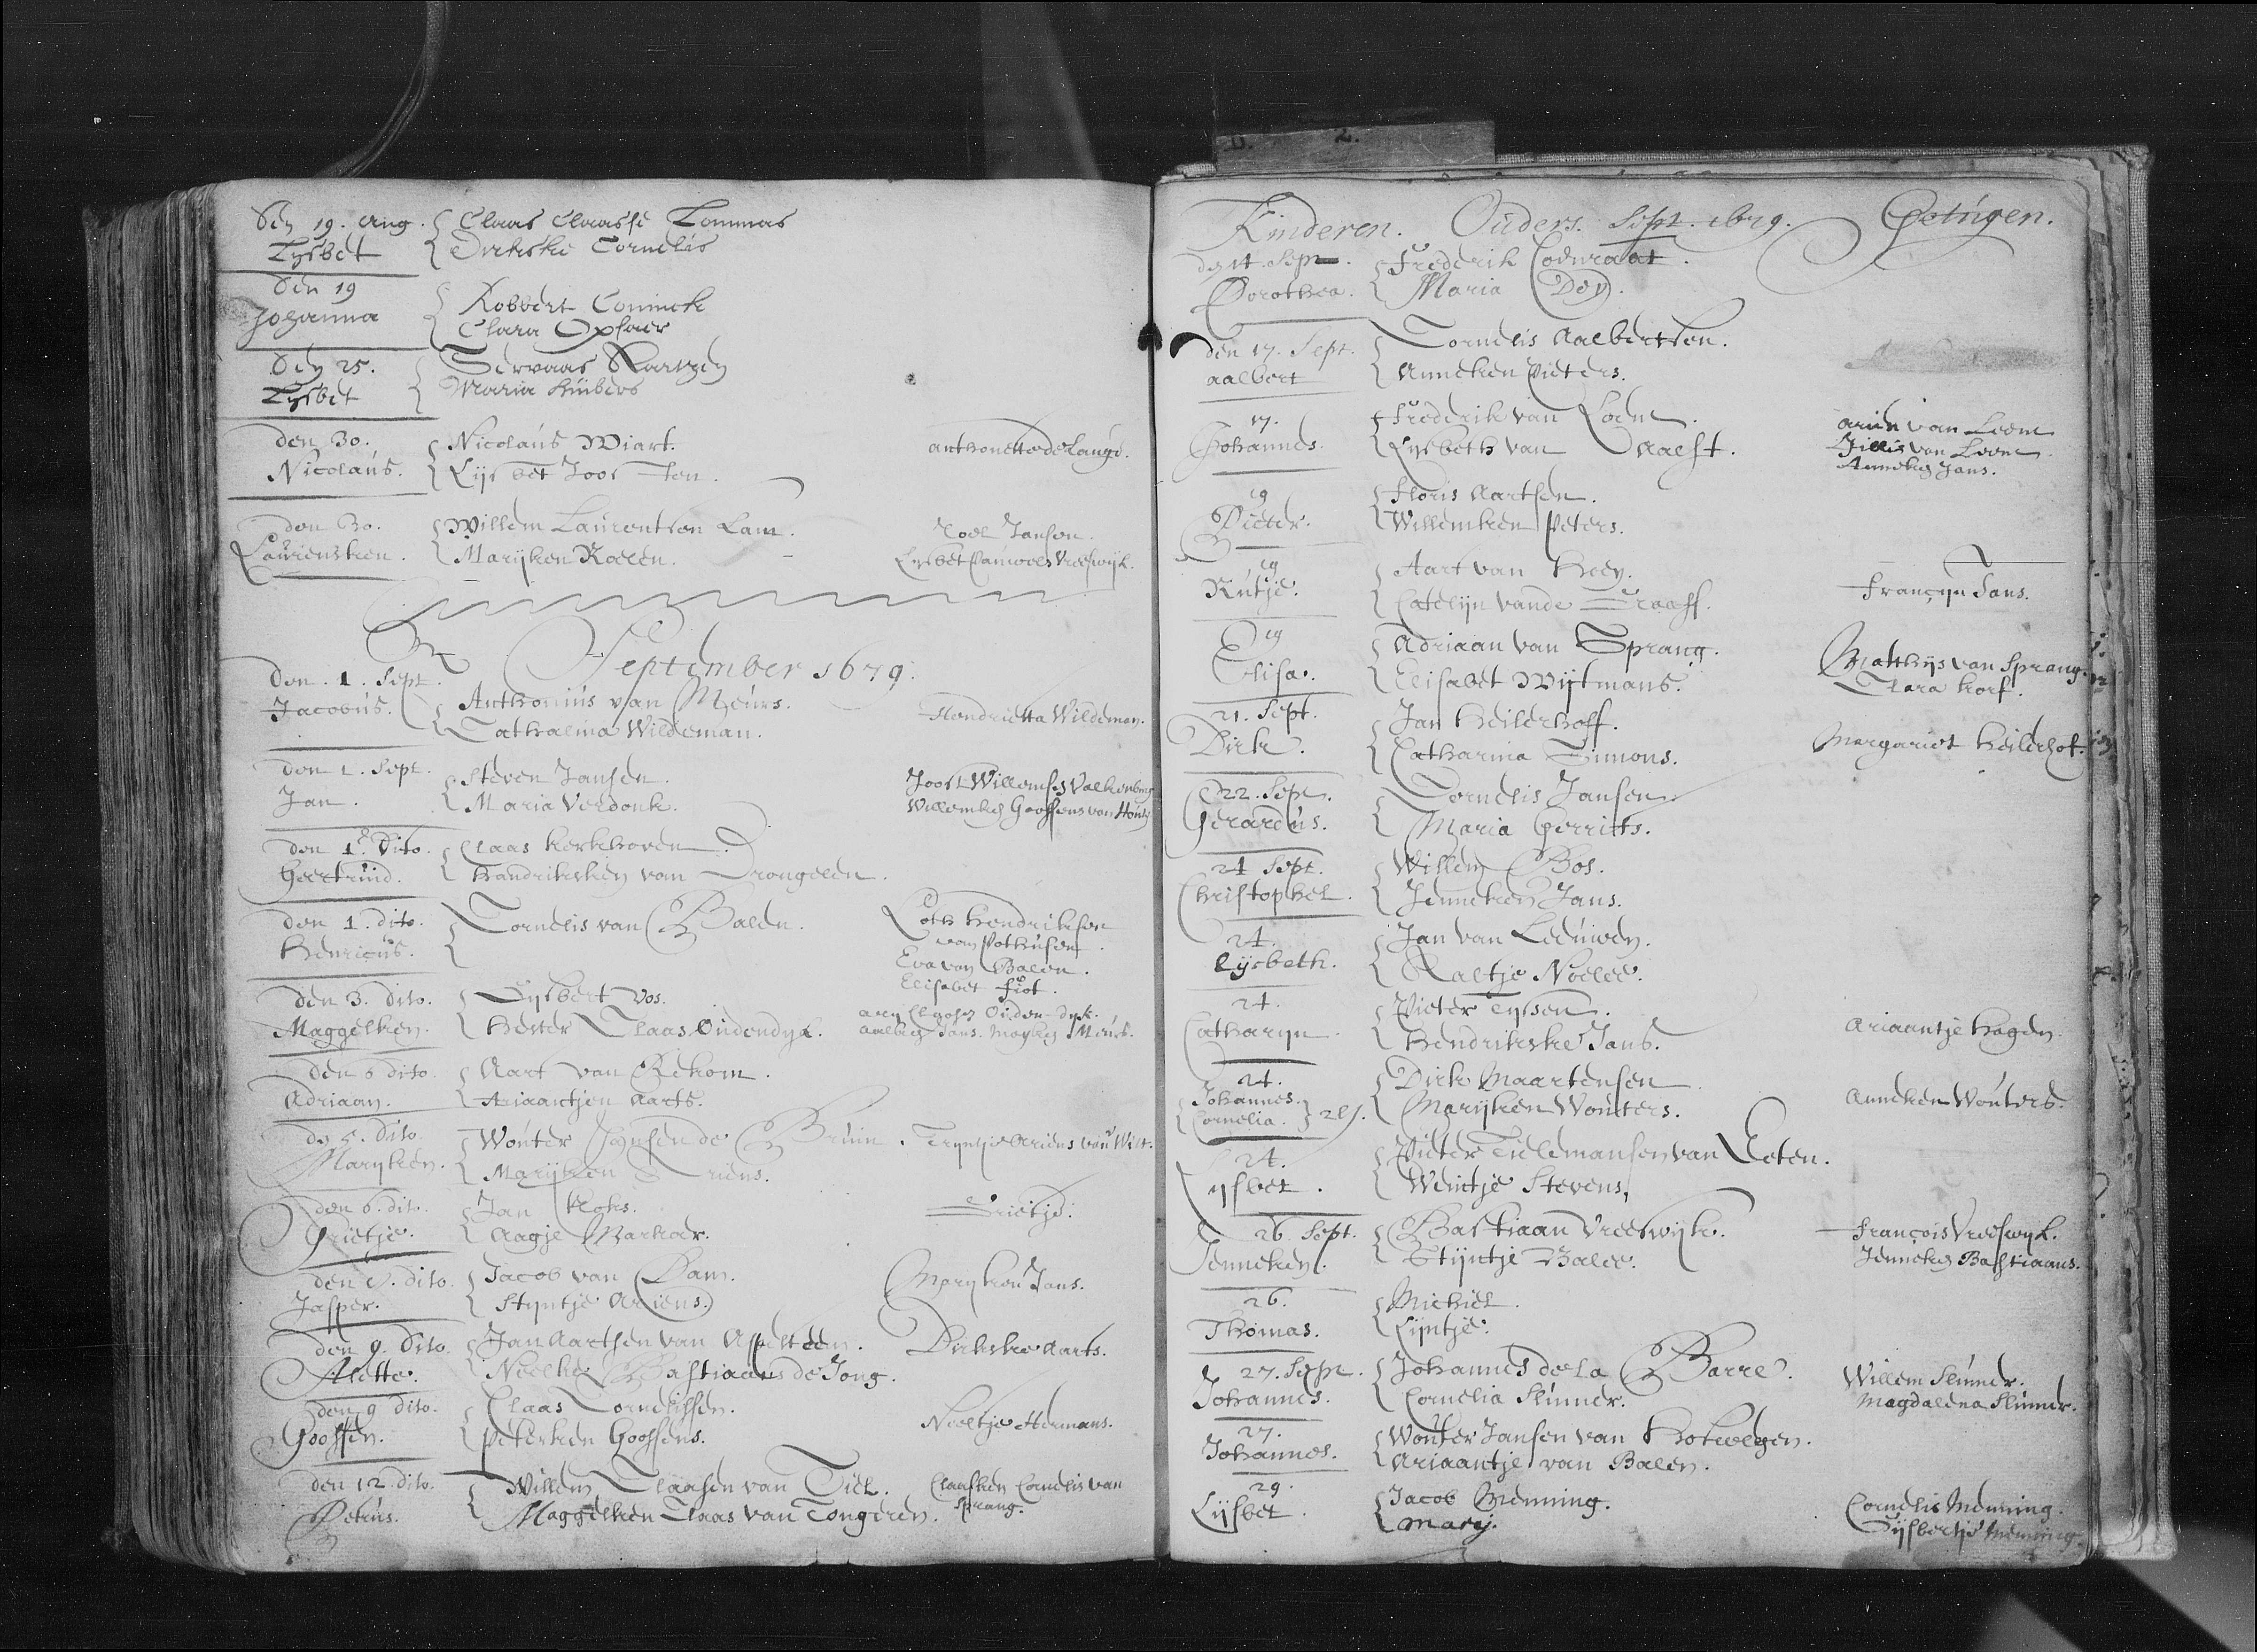 Den 19. Aug. Claas Claasse Tommas
Lysbet Dirkske Cornelis
Den 19 Robbert Coninck
Johanna Clara
Den 25. Servaas
Lysbet Maria Huibers
den 30. Nicolaus Wiart. Anthonette de Lange.
Nicolaus. Lijsbet Joosten.
den 30. Willem Laurentsen Lam. Roel Jansen.
Laurensken. Marijken Roelen. Lysbet Pauwels Vreeswijk.
September 1679.
Den 1. Sept. Anthonius van Meurs. Hendrietta Wildeman.
Jacobus. Cathalina Wildeman.
den 1. Sept. Steven Jansen. Joost Willemsen Valkenburg
Jan. Maria Verdonk. Willemken Goossens van
den 1. Dito. Claas Kerkhoven.
Geertruid. Handriksken van Drongelen.
den 1. dito. Cornelis van Balen. Loth Hendriksen
Henricus. van Pothusen.
Eva van Balen.
Elisabet
den 3. dito. Gysbert Vos. Oudendyk.
Maggelken. Hester Claas Oudendyk. Aalken Jans.
den 6 dito. Aart van Bekom.
Adriaan. Ariaantjen Aarts.
dito. Wouter Jansen de Bruin. Tryntje Ariens van
Maryken. Marijken Ariens.
den 6. dito. Jan Kloks. Grietje.
Grietje. Aagje
dito. Jacob van Dam. Maryken Jans.
Jasper. Styntje Ariens.
den 9. Dito. Jan Aartsen van Asselt Dirkske Aarts.
Alette. Neelke Bastiaans de Jong.
den 9 dito. Claas Cornelissen. Neeltje Hermans.
Goossen. Peterken Goossens.
den 12. dito. Willem Claasen van Tiel. Claasken Cornelis van
Petrus. Maggelken Claas van Tongeren. Sprang.
Kinderen. Ouders. Sept. 1679. Getúgen.
den 14. Sept. Frederik Coenraat.
Dorothea. Maria
den 17. Sept. Cornelis Aalbertsen.
Aalbert Anneken Pieters.
17. Frederik van Loen. Arien van Leen
Johannes. Lysbeth van Aalst. Jillis van Leen.
Anneken Jans.
19 Floris Aartsen.
Pieter. Willemken Peters.
19 Aart van Heey.
Rutje. Catelijn vande Graaff. Françyn Jans.
19 Adriaan van Sprang. Matthijs van Sprang.
Elisa. Elisabet Wijtmans. Clara Korf.
21. Sept. Jan Heilerhoff. Margariet Heilerhof.
Dirk. Catharina Simons.
22. Sept. Cornelis Jansen.
Gerardus. Maria Gerrits.
24 Sept. Willem Bos.
Christophel. Jenneken Jans.
24. Jan van Leeuwen.
Lijsbeth. Aaltje Noelee.
24. Pieter Tyssen.
Catharyn Hendrikske Jans. Ariaantje Hagen.
24. Dirk Maartensen
Johannes. Marijken Wouters. Anneken Wouters.
Cornelia.
24. Pieter Tielemansen van Eeten.
Lysbet. Wentje Stevens.
26. Sept. Bastiaan Vreeswijk. François Vreeswyk.
Jenneken. Stijntje Balee. Jenneken Bastiaans.
26. Michiel.
Thomas. Lijntje.
27. Sept. Johannes de la Barre. Willem Slinner.
Johannes. Cornelia Slinner. Magdalena Slinner.
27. Wouter Jansen van
Johannes. Ariaantje van Balen.
29. Jacob Menning. Cornelis Menning.
Lijsbet. Marij. Gijsbertje Menning.